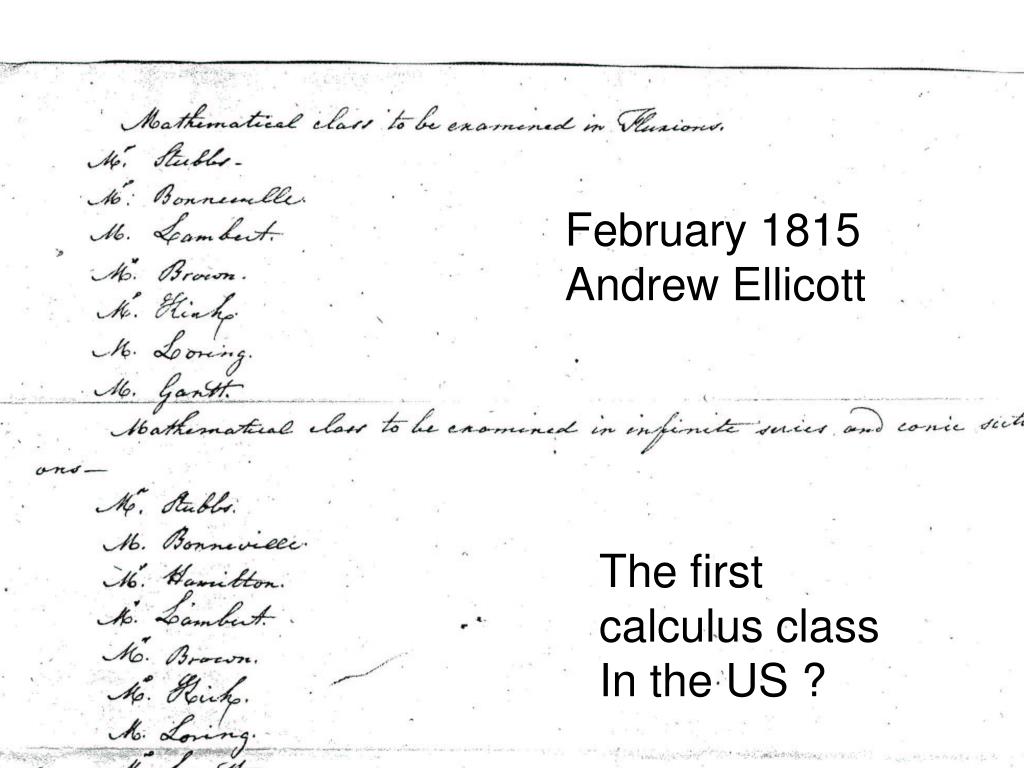 Mathematical class to be examined in Fluxions.
Mr. Stubbs-
Mr. Bonneville.
M. Lambert.
Mr. Brown.
Mr. Kirk.
M. Loring.
M. Gantt.
February 1815
Andrew Ellicott
Mathematical class to be examined in infinite series and conic secti
ons—
Mr. Stubbs.
M. Bonneville.
Mr. Hamilton.
Mr. Lambert.
Mr. Brown.
Mr. Kirk.
M. Loring.
The first
calculus class
In the US ?